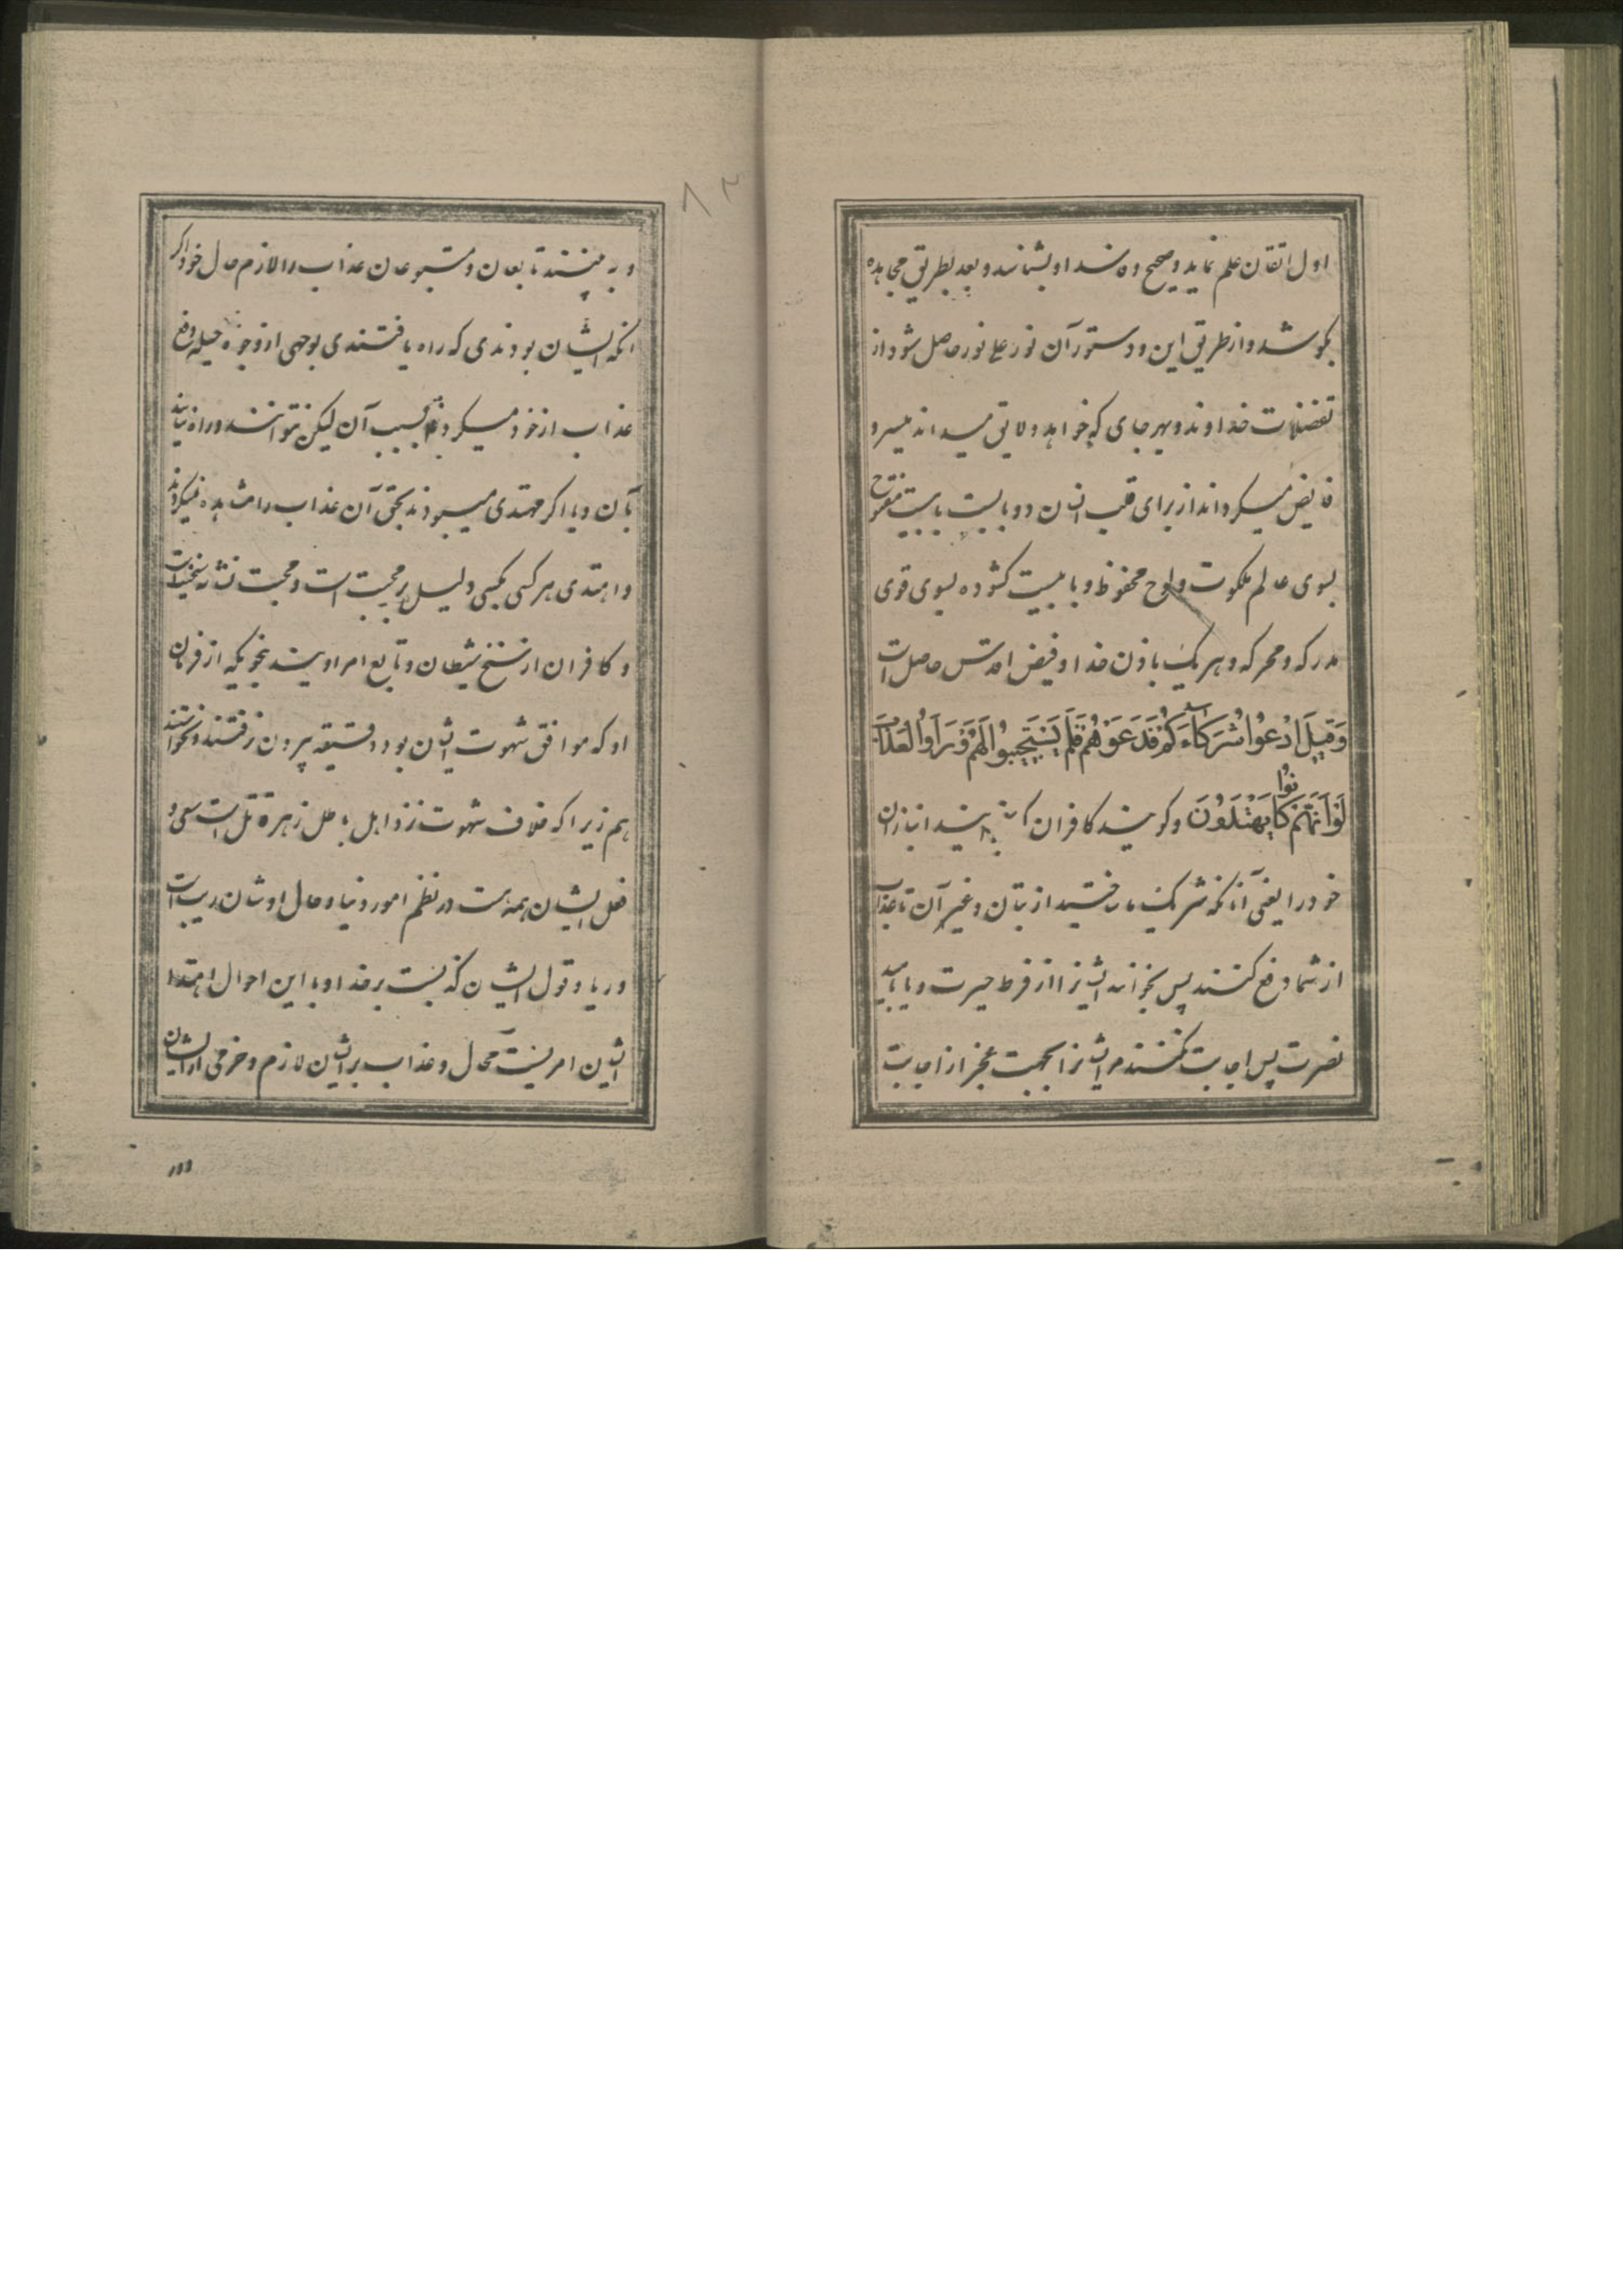 اول اتقان علم نماید و صحیح و فاسد او بشناسد و بعد بطریق مجاهده
بکوشد و از طریق این دو دستور آن نور علی نور حاصل شود از
تفضلات خداوند و بهر جای که خواهد و لایق میداند میسر و
فایض میکرداند از برای قلب انسان دو بابیست بابیست مفتوح
بسوی عالم ملکوت و لوح محفوظ و بابیست کشوده بسوی قوی
مدرکه و محرکه و هر یک باذن خدا و فیض اقدس حاصل است
وَقِيلَ ادْعُوا شُرَكَاءَكُمْ فَدَعَوْهُمْ فَلَمْ يَسْتَجِيبُوا لَهُمْ وَرَأَوُا الْعَذَابَ
لَوْ أَنَّهُمْ كَانُوا يَهْتَدُونَ و کویند کافران را بخوانید انبازان
خود را یعنی آنانکه شریک ساختید از بتان و غیر آن تا عذاب
از شما دفع کنند پس بخوانند ایشانرا از فرط حیرت و یا بامید
نصرت پس اجابت نکنند مر ایشانرا بجهت عجز از اجابت
و به بینند تابعان و متبوعان عذاب را لازم حال خود اگر
آنکه ایشان بودندی که راه یافتندی بوجهی از وجوه حیله دفع
عذاب از خود میکردند بسبب آن لیکن نتوانند و راه نیابند
بآن و یا اکر مهتدی میبودند بحق آن عذاب را مشاهده نمیکردند
و اهتدی هر کسی بکسی دلیل بر محبت است و محبت نشانه سنخیت است
و کافران از سنخ شیطان و تابع امر اویند بنحویکه از فرمان
او که موافق شهوت ایشان بود دقیقه بیرون نرفتند و نخواستند
هم زیرا که خلاف شهوت نزد اهل باطل زهر قاتل است سعی و
فعل ایشان همه است در نظم امور دنیا و حال اوشان ریب است
و ریا و قول ایشان کذبست بر خدا و با این احوال اهتداء
ایشان امریست محال و عذاب بر ایشان لازم و خرمی از ایشان